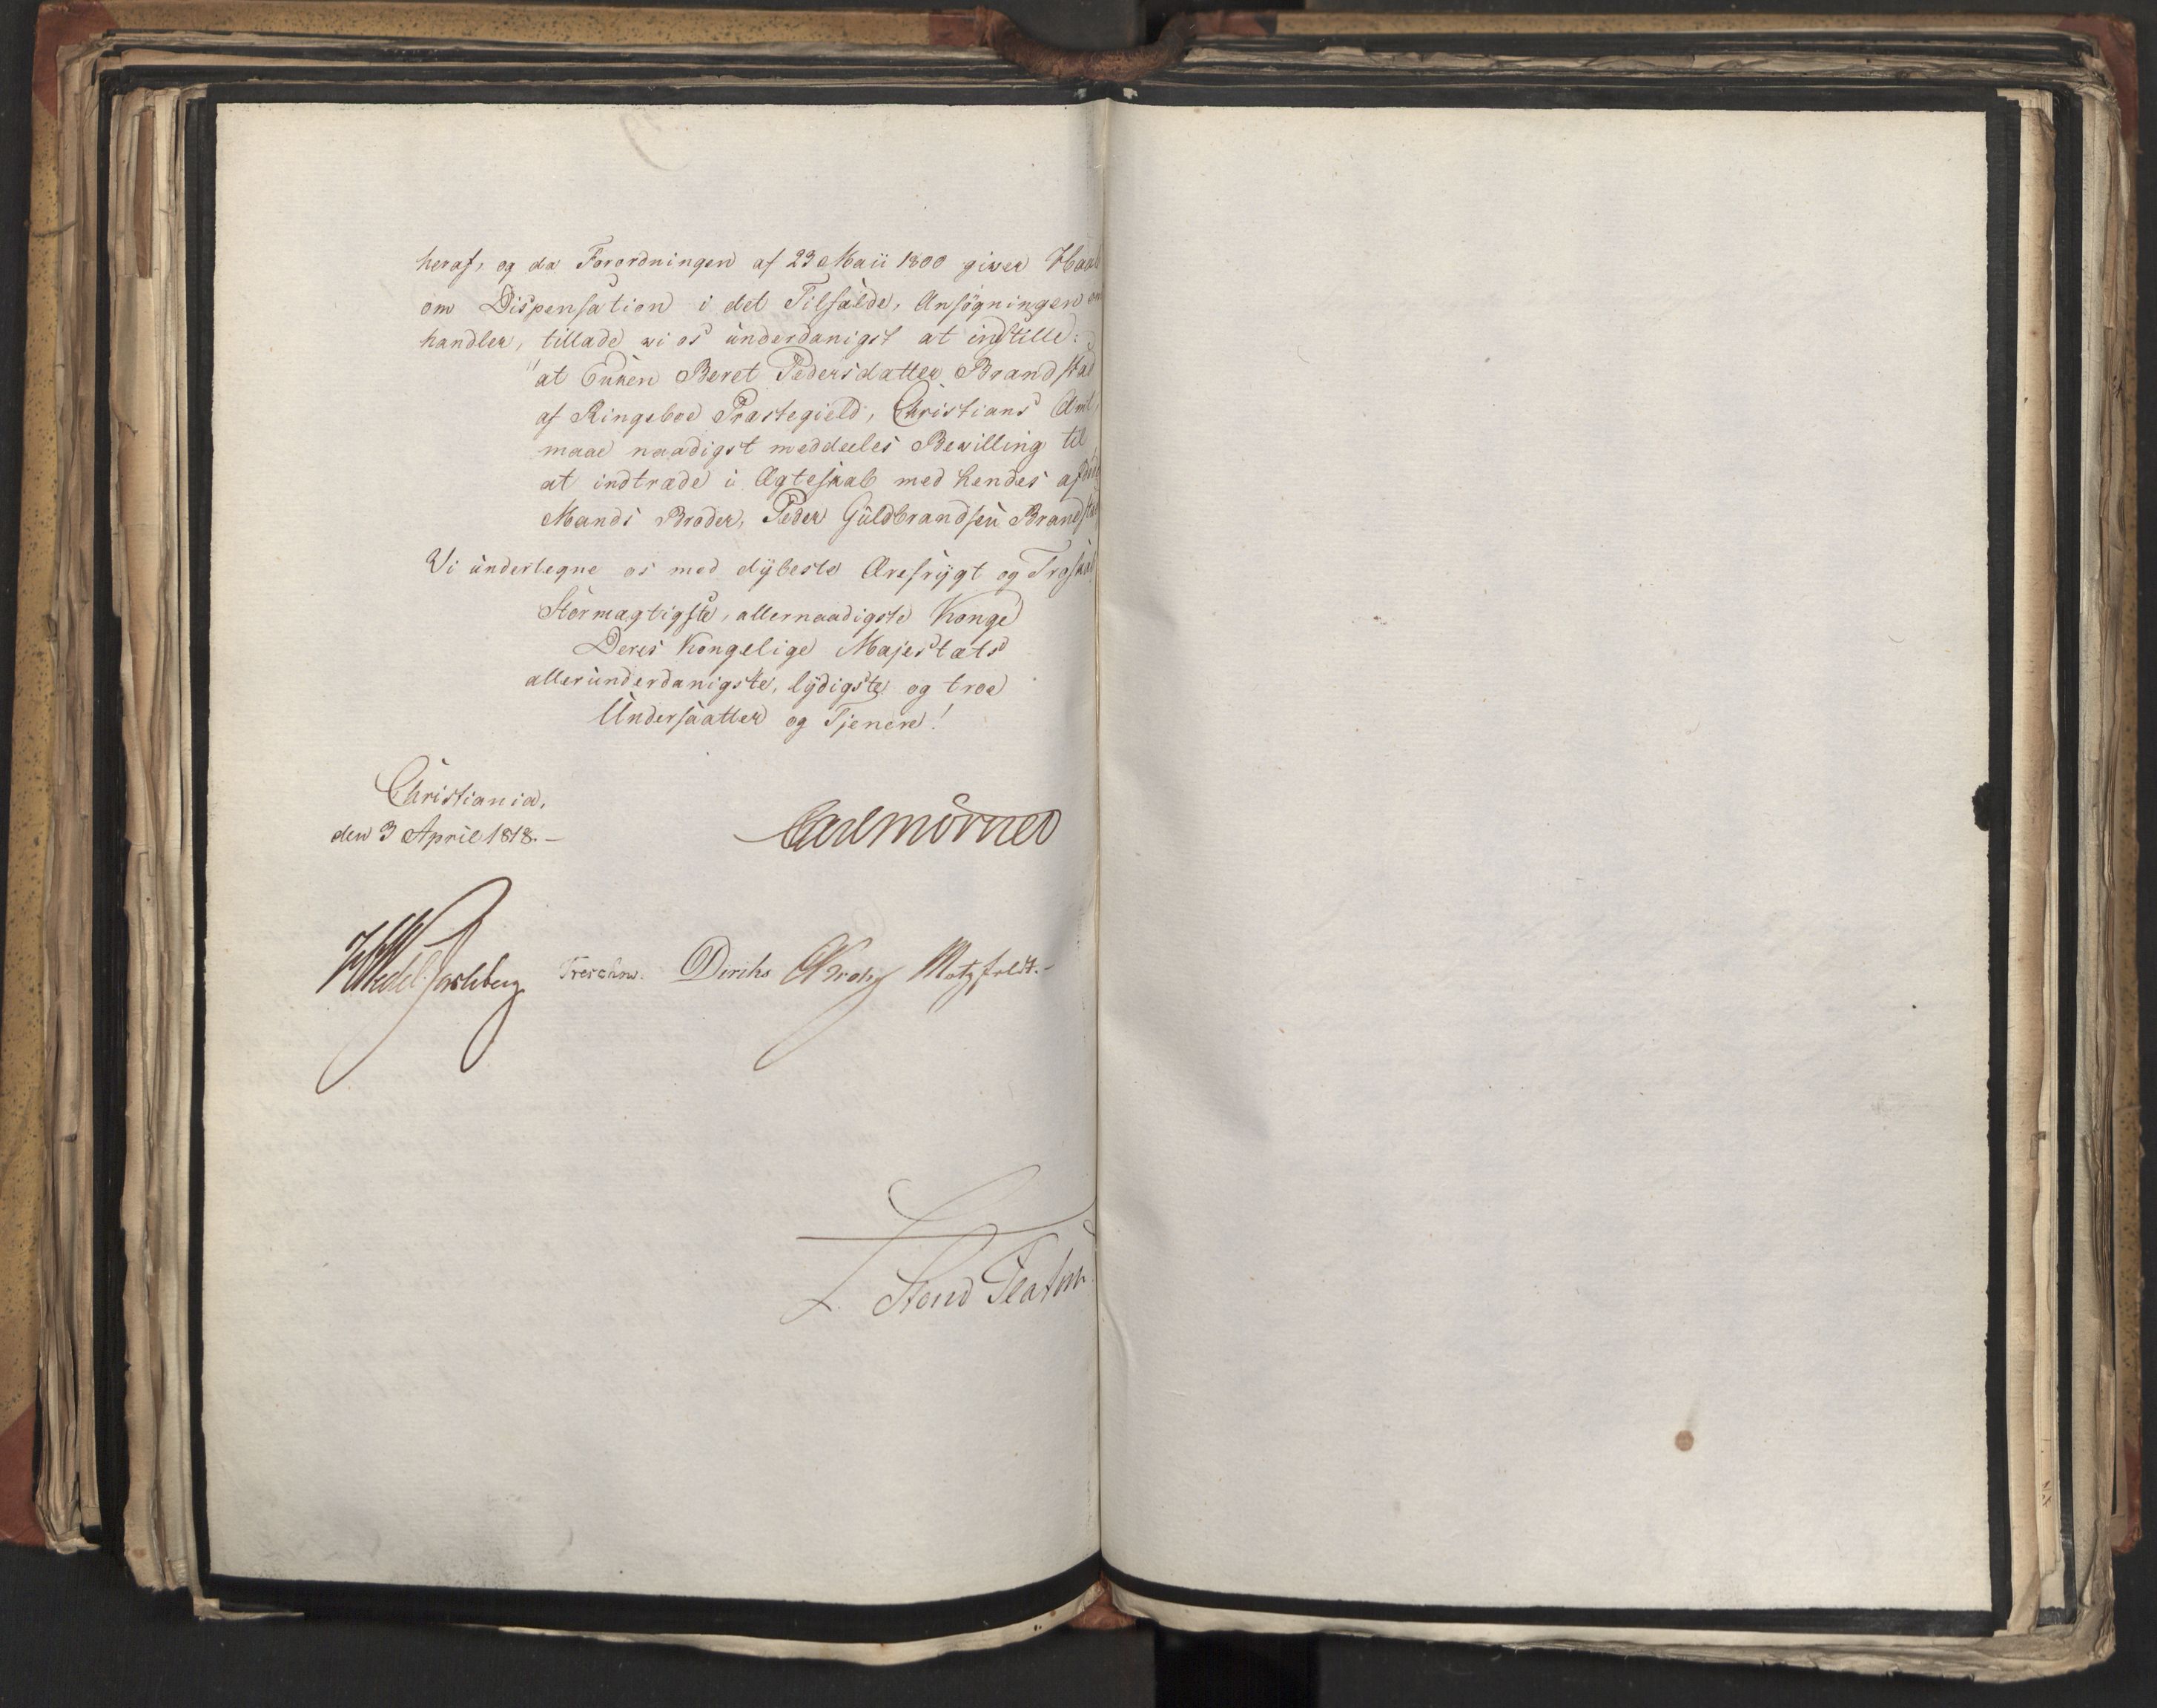 heraf, og da Forordningen af 23 Maii 1800 giver Haab
om Dispensation i det Tilfælde, Ansøgningen om
handler, tillade vi os underdanigst at indstille:
"at Enken Beret Pedersdatter Brandstad
af Ringeboe Præstegield, Christians Amt,
maae naadigst meddeeles Bevilling til
at indtræde i Ægteskab med hendes afdøde
Mands Broder, Peder Guldbrandsen Brandstad
Vi undertegne os med dybeste Ærefrygt og Troskab
Stormægtigste, allernaadigste Konge
Deres Kongelige Majestæts
allerunderdanigste, lydigste og troe
Undersaatter og Tjenere!
Christiania,
den 3 April 1818.-
Carl Mörner
HWedel Jarlsberg Treschow. Diriks CKrohg Motzfeldt.-
L. Stoud Platou